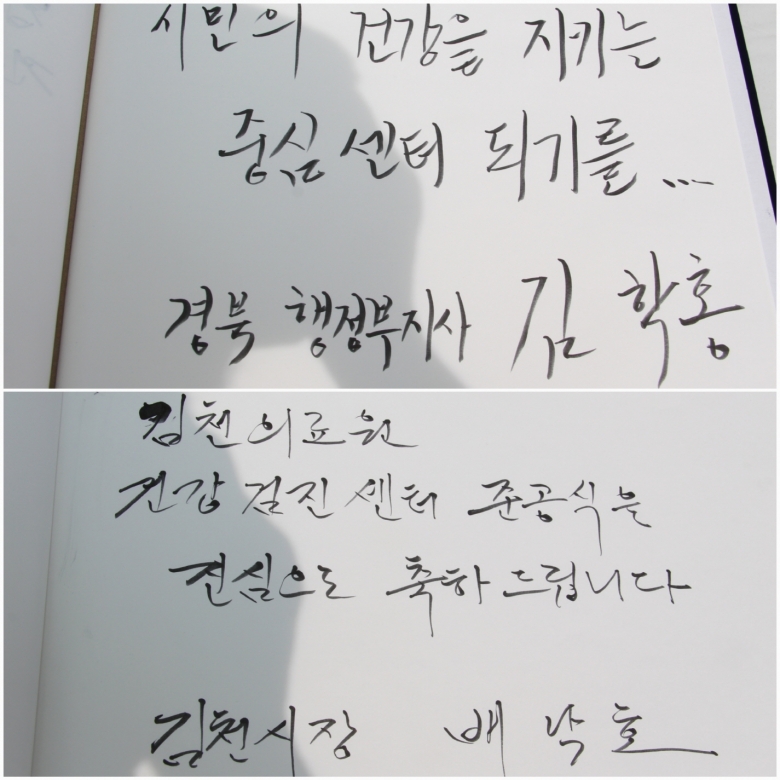 시민의 건강을 지키는
중심 센터 되기를 ...
경북 행정부지사 김 학홍
김천의료원
건강 검진 센터 준공식을
진심으로 축하 드립니다
김천시장 배 낙 호